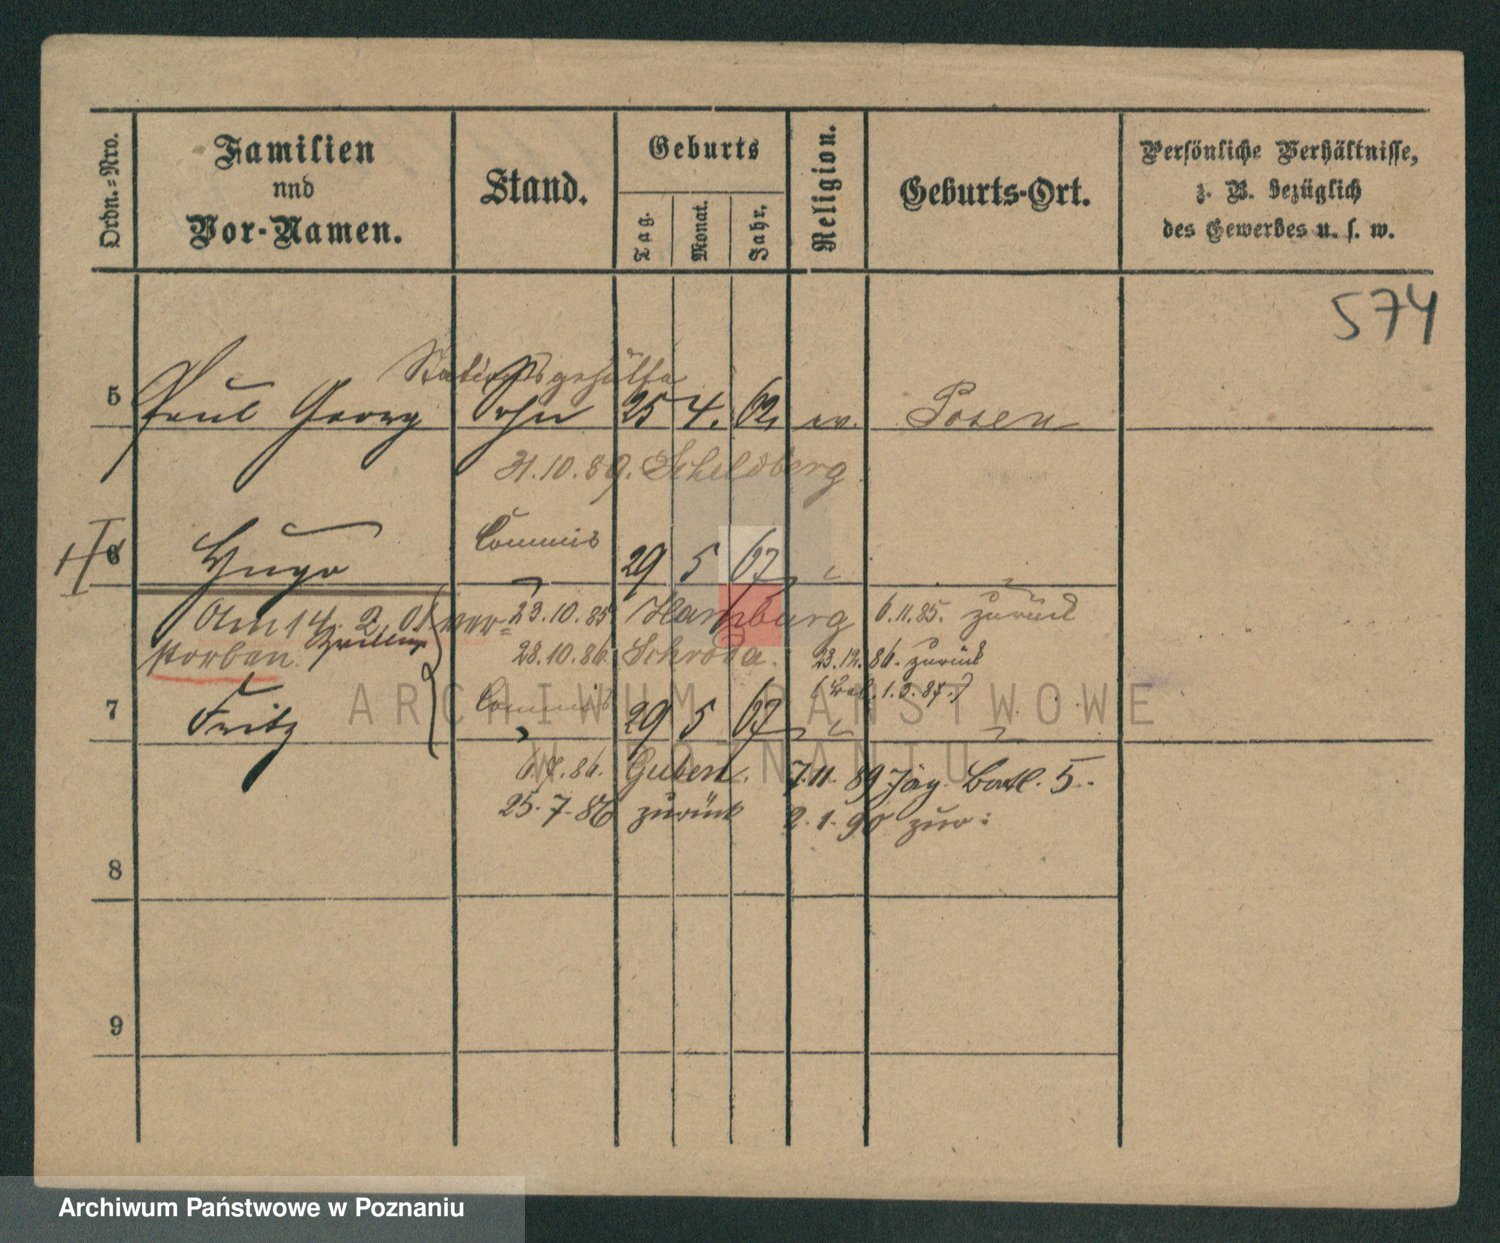 Ordn.=Nro.
Familien
nnd
Vor-Namen.
Stand.
Geburts
Tag.
Monat.
Jahr.
Religion.
Geburts-Ort.
Persönliche Verhältnisse,
z. B. bezüglich
des Gewerbes u. s. w.
574
Stationsgehülfe
5 Paul Georg Sohn 25 4. 62 ev. Posen
31.10.89. Schildberg
6 Hugo Commis 29 5 67
Am 14. 2. 01 ver= 23.10.85 Hamburg 6.11.85. zurück
storben. Zwillinge 28.10.86. Schroda. 23.12.86. zurück
1.3.87.)
7 Fritz Commis 29 5 67
86. Guben. 7.11.89 Jäg. Batl. 5.
25.7.86 zurück 2.1.90 zur:
8
9
ARCHIWUM PAŃSTWOWE
W POZNANIU
Archiwum Państwowe w Poznaniu